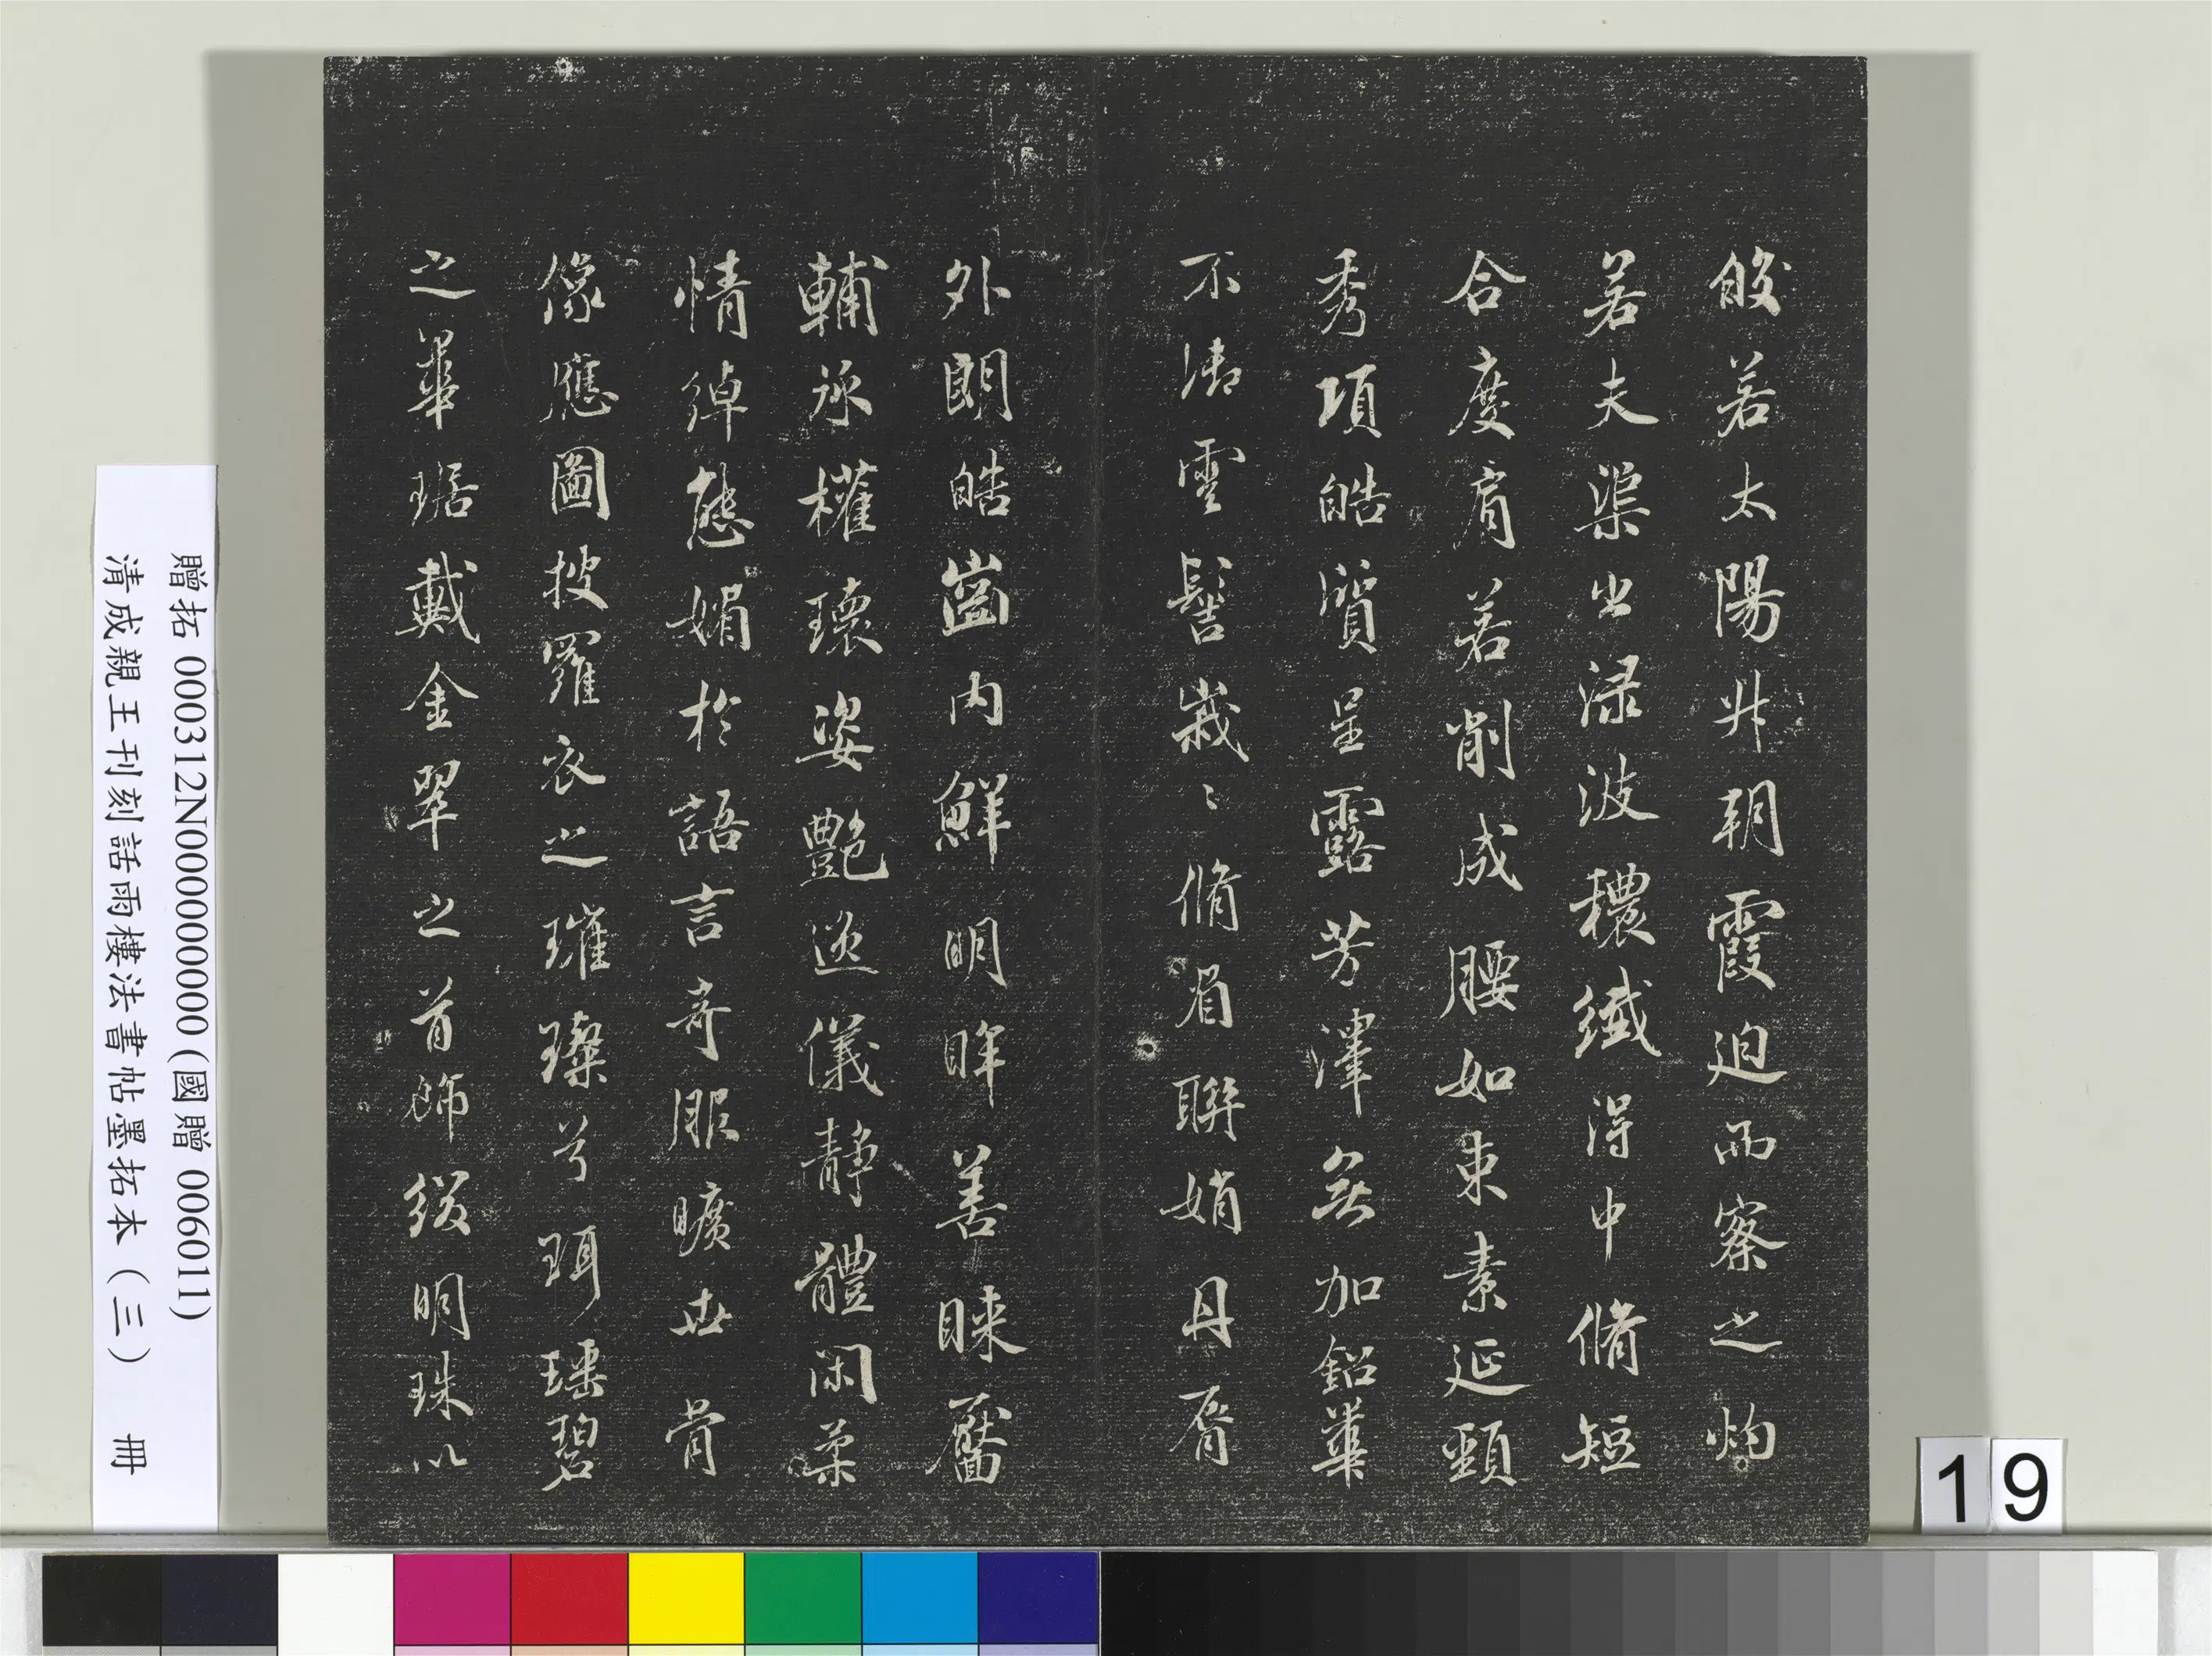 皎若太陽升朝霞迫而察之灼
若夫渠出渌波穠纖得中脩短
合度肩若削成腰如束素延頸
秀項皓質呈露芳澤無加鉛華
不御雲髻峩〻脩眉聯娟丹脣
外朗皓齒內鮮明眸善睞靨
輔承權瓌姿艷逸儀靜體閑柔
情綽態媚於語言奇服曠世骨
像應圖披羅衣之璀璨兮珥瑤碧
之華琚戴金翠之首飾綴明珠以
贈拓 000312N000000000(國贈 006011)
清成親王刊刻詒晉樓法書帖墨拓本（三） 冊
19